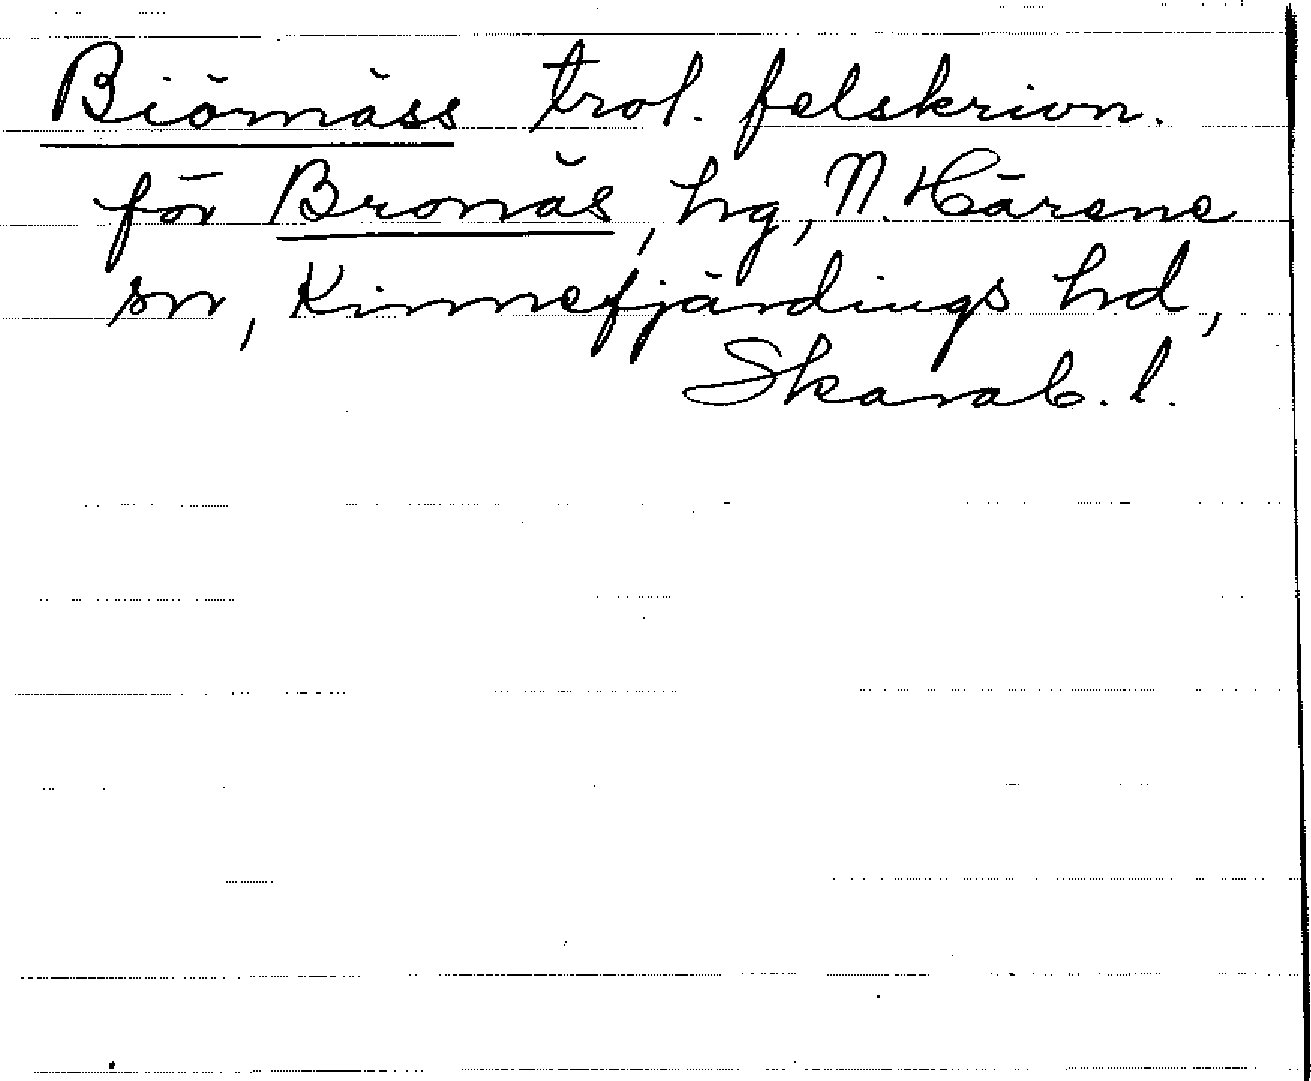 Biörnäss trol. felskrivn.
för Bronäs, hg, N. Härene
sn, Kinnefjärdings hd,
Skarab. l.